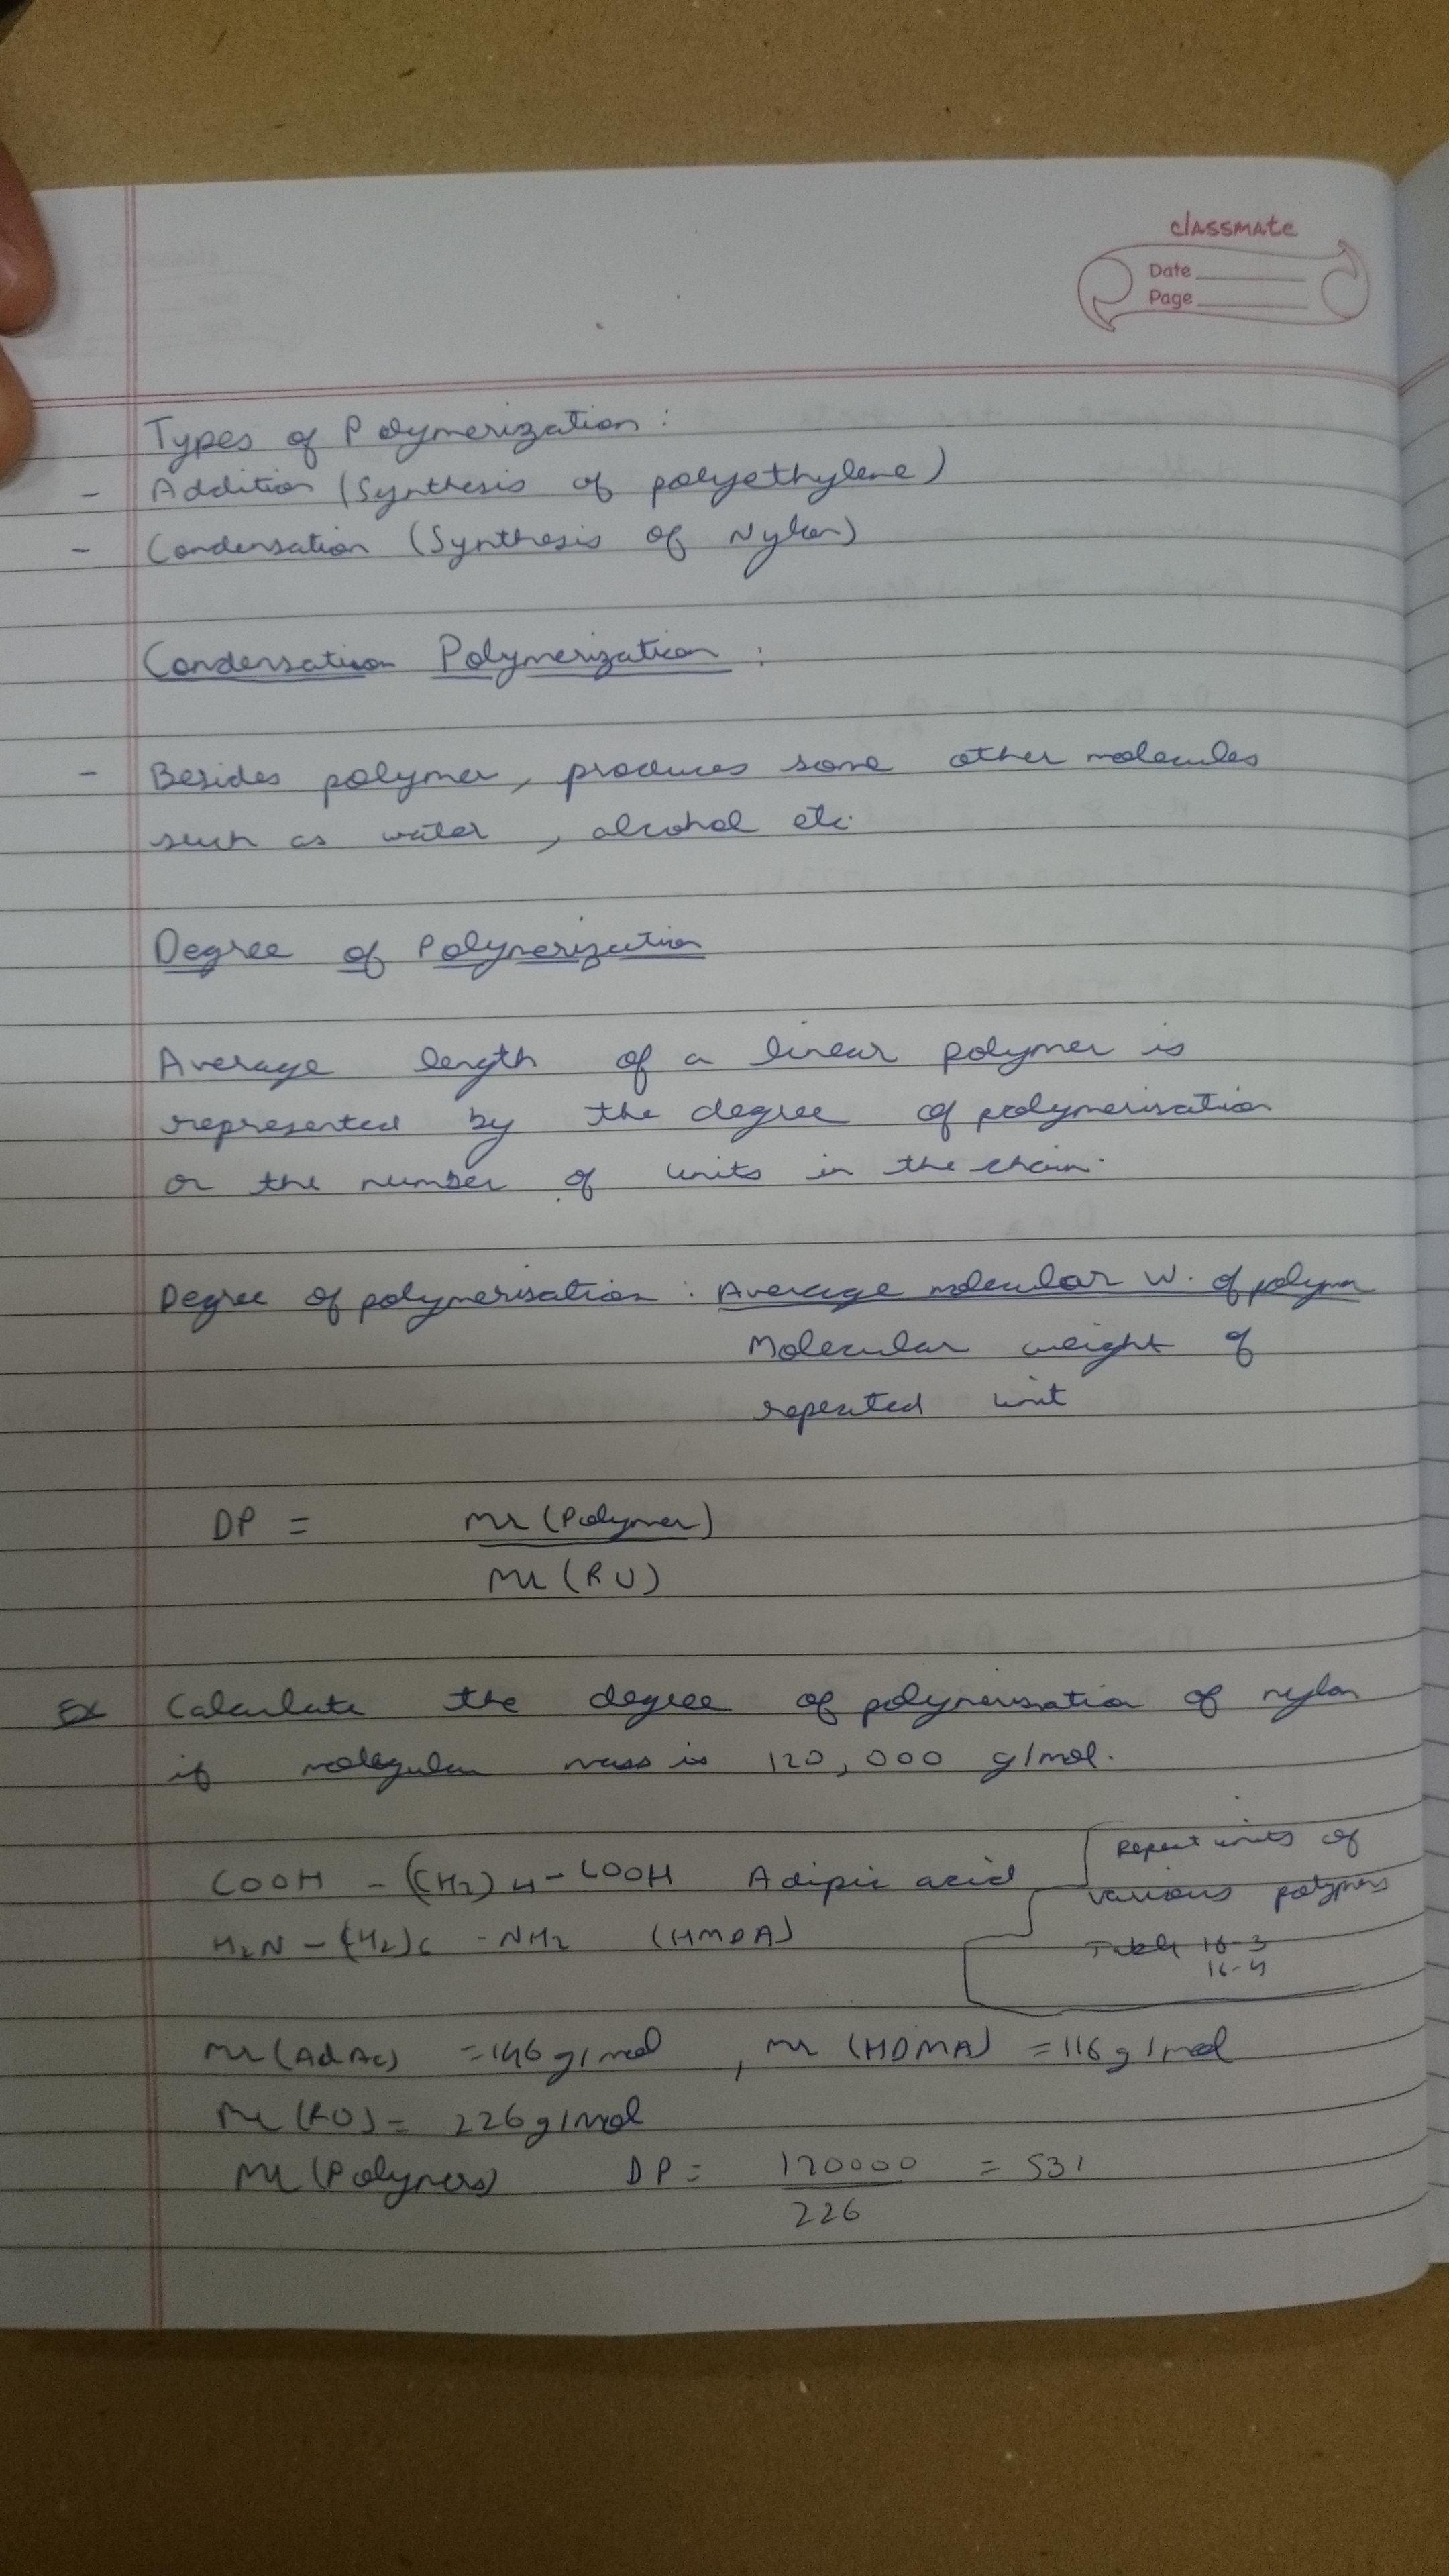 classmate
Date
Page
Types of Polymerization :
- Addition (Synthesis of polyethylene)
- Condensation (Synthesis of Nylon)
Condensation Polymerization :
- Besides polymer, produces some other molecules
such as water , alcohol etc.
Degree of Polymerization
Average length of a linear polymer is
represented by the degree of polymerisation
or the number of units in the chain.
Degree of polymerisation : Average molecular W. of polym
Molecular weight of
repeated unit
DP = Mr (Polymer)
Mr (RU)
Ex Calculate the degree of polymerisation of nylon
if molecular mass is 120,000 g/mol.
Repeat units of
COOH - (CH2)4 - COOH Adipic acid
various polymers
H2N - (H2)6 - NH2 (HMDA)
Table 16-3
16-4
Mr (AdAc) = 146 g/mol , Mr (HDMA) = 116 g/mol
Mr (RU) = 226 g/mol
Mr (Polymers) DP = 120000 = 531
226